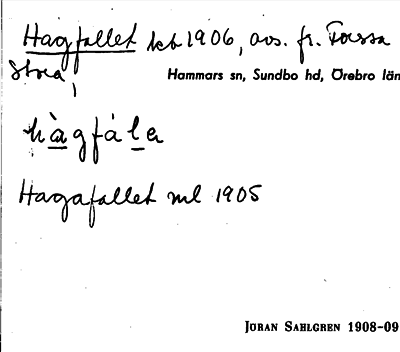 Hagfallet kb 1906, avs. fr. Forssa
Stora,
Hammars sn, Sundbo hd, Örebro län
hàgfálɐ
Hagafallet ml 1905
JÖRAN SAHLGREN 1908-09